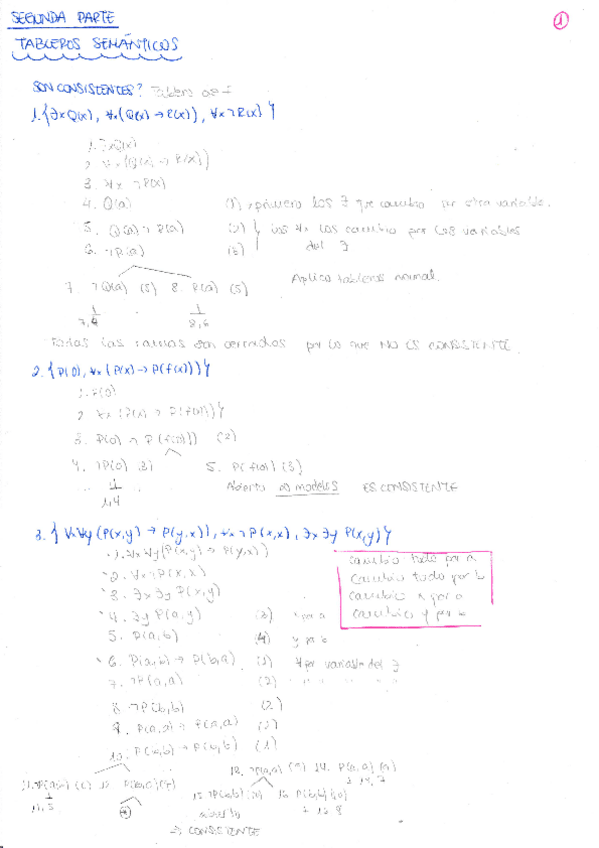 SEGUNDA PARTE
1
TABLEROS SEMÁNTICOS
SON CONSISTENTES? Tablero
1. {∃xQ(x), ∀x(Q(x) → R(x)), ∀x¬R(x)}
1. ∃xQ(x)
2. ∀x(Q(x) → R(x))
3. ∀x ¬R(x)
4. Q(a) (1) primero los ∃ que cambio por otra variable.
5. Q(a) → R(a) (2) los ∀x los cambio por las variables
6. ¬R(a) (3) del ∃
Aplico tableros normal.
7. ¬Q(a) (5) 8. R(a) (5)
7,4 8,6
Todas las ramas son cerradas por lo que NO ES CONSISTENTE.
2. {P(0), ∀x(P(x) → P(f(x)))}
1. P(0)
2. ∀x (P(x) → P(f(x)))}
3. P(0) → P(f(0))) (2)
4. ¬P(0) 3) 5. P(f(0)) (3)
1,4 Abierto modelos ES CONSISTENTE
3. {∀x∀y(P(x,y) → P(y,x)), ∀x¬P(x,x), ∃x∃y P(x,y)}
1. ∀x∀y(P(x,y) → P(y,x))
2. ∀x¬P(x,x)
3. ∃x∃y P(x,y)
4. ∃y P(a,y) (3) x por a
5. P(a,b) (4) y por b
6. P(a,b) → P(b,a) (1) ∀ por variable del ∃
7. ¬P(a,a) (2)
8. ¬P(b,b) (2)
9. P(a,a) → P(a,a) (1)
10. P(b,b) → P(b,b) (1)
cambio todo por a
cambio todo por b
cambio x por a
cambio y por b
11. ¬P(a,b) (6) 12. P(b,a) (6)
11,5
13. ¬P(a,a) (9) 14. P(a,a) (9)
14,7
15. ¬P(b,b) (10) 16. P(b,b) (10)
abierto
→ CONSISTENTE